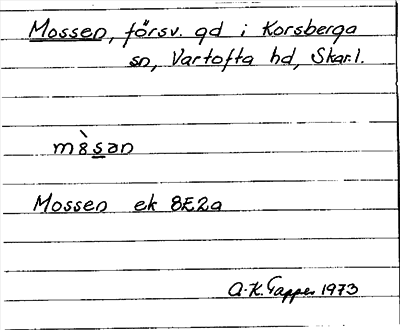 Mossen, försv. gd i Korsberga
sn, Vartofta hd, Skar.l.
m8̀sən
Mossen ek 8E2a
A.K. Tapper 1973